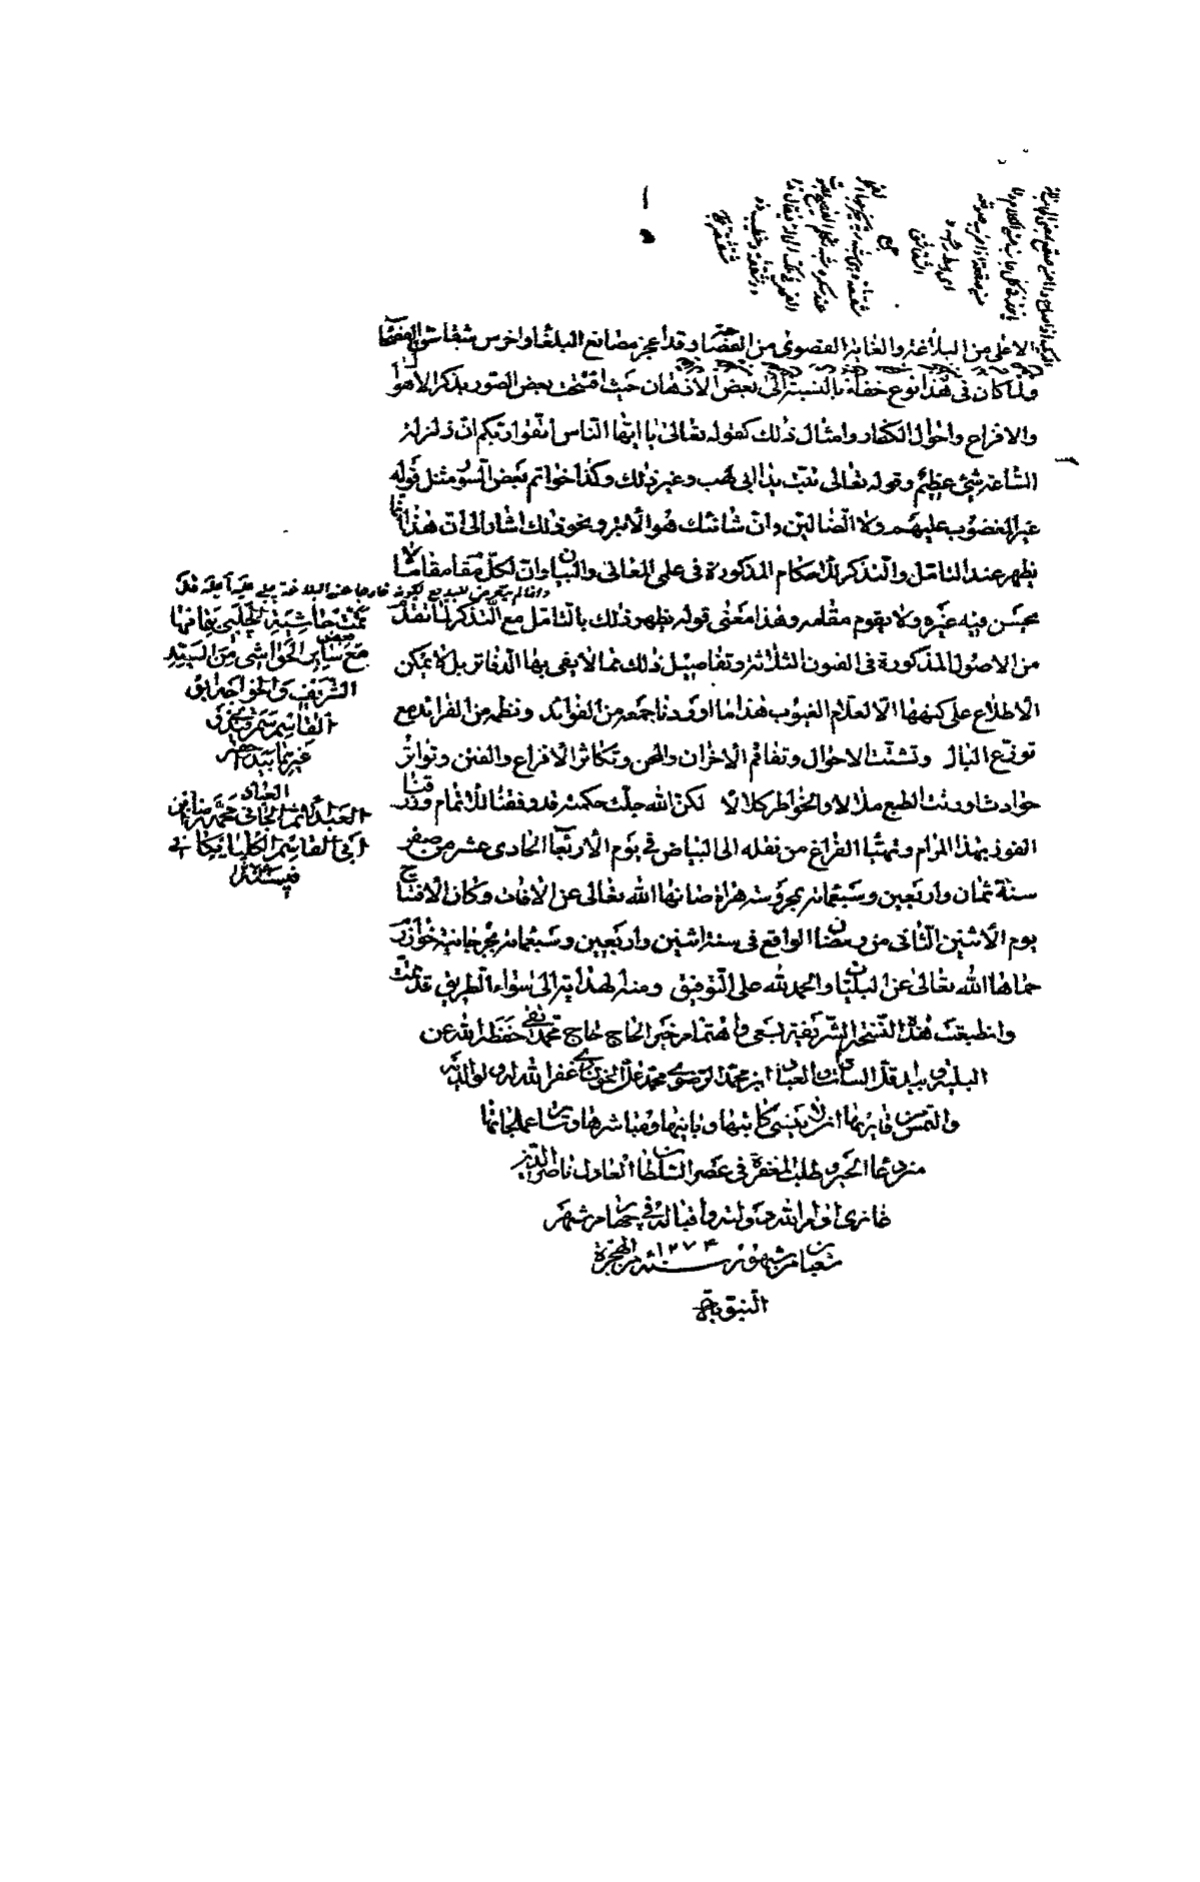 الاعلى من البلاغة والغاية القصوى من الفصاحة وقد اعجز مصاقع البلغاء واخرس شقاشق الفصحاء
ولما كان فى هذا نوع خفاء بالنسبة الى بعض الاذهان حيث افتتحت بعض السور بذكر الاهوال
والافزاع واحوال الكفار وامثال ذلك كقوله تعالى يا ايها الناس اتقوا ربكم ان زلزلة
الساعة شئ عظيم وقوله تعالى تبت يدا ابى لهب وغير ذلك وكذا خواتم بعض السور مثل قوله
غير المغضوب عليهم ولا الضالين وان شانئك هو الابتر ونحو ذلك اشار الى ان هذا انما
يظهر عند التامل والتذكر للاحكام المذكورة فى علمى المعانى والبيان وان لكل مقام مقالا
يحسن فيه غيره ولا يقوم مقامه وهذا معنى قوله يظهر ذلك بالتامل مع التذكر لما تقدم
من الاصول المذكورة فى الفنون الثلاثة وتفاصيل ذلك مما لا يفى بها الدفاتر بل لا يمكن
الاطلاع على كنهها الا لعلام الغيوب هذا ما اوردنا جمعه من الفوائد ونظمه من الفرائد مع
توزع البال وتشتت الاحوال وتفاقم الاحزان والمحن وتكاثر الافزاع والفتن وتواتر
حوادث اورثت الطبع ملالا والخواطر كلالا لكن الله جلت حكمته قد وفقنا للاتمام ورزقنا
الفوز بهذا المرام وتهيأ الفراغ من نقله الى البياض فى يوم الاربعاء الحادى عشر من صفر
سنة ثمان واربعين وسبعمائة بمحروسة هراة صانها الله تعالى عن الافات وكان الافتتاح
يوم الاثنين الثانى من رمضان الواقع فى سنة اثنين واربعين وسبعمائة بجرجانية خوارزم
حماها الله تعالى عن البليات والحمد لله على التوفيق ومنه الهداية الى سواء الطريق قد تمت
وانطبعت هذه النسخة الشريفة بسعى واهتمام خير الحاج حاج محمد تقى حفظه الله عن
البلية بيد اقل السادات والعباد ابن محمد الرضوى محمد على الخونسارى غفر الله له ولوالديه
والتمس من قاريها ان لا ينسى كاتبها وبانيها ومباشرها وساير عملجاتها
من دعاء الخير وطلب المغفرة فى عصر السلطان العادل ناصر الدين
غازى ادام الله دولته واقباله فى چهارم شهر
شعبان من شهور سنة ١٢٧٤ من الهجرة
النبوية
تمت حاشية الچلبى بتمامها
مع ساير الحواشى من السيد
الشريف والخواجه ابو
القاسم سمرقندى
غيرهما بيد احقر
العباد
العبد الاثم الجانى محمد رضا ابن
ابى القاسم الگلپايگانى
فى سنة